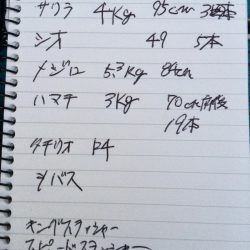 サワラ 4Kg 95cm 3本
シオ 49 5本
メジロ 5.3Kg 84cm
ハマチ 3Kg 70cm前後
19本
タチウオ F4
シバス
キングスラッシャー
スピードスラッシャー